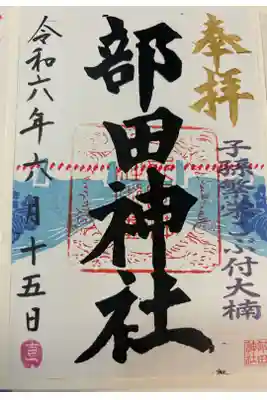 奉拝
子孫繁栄こぶ付大楠
部田神社
令和六年六月十五日
部田神社